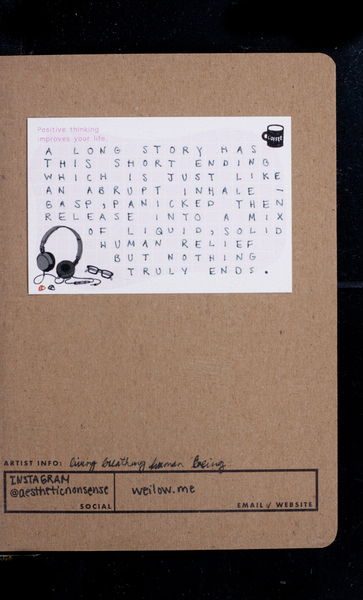 Positive thinking
improves your life.
COFFEE
A LONG STORY HAS
THIS SHORT ENDING
WHICH IS JUST LIKE
AN ABRUPT INHALE -
GASP, PANICKED THEN
RELEASE INTO A MIX
OF LIQUID, SOLID
HUMAN RELIEF
BUT NOTHING
TRULY ENDS.
ARTIST INFO: living breathing human being
INSTAGRAM
@aestheticnonsense
weilow.me
SOCIAL
EMAIL / WEBSITE